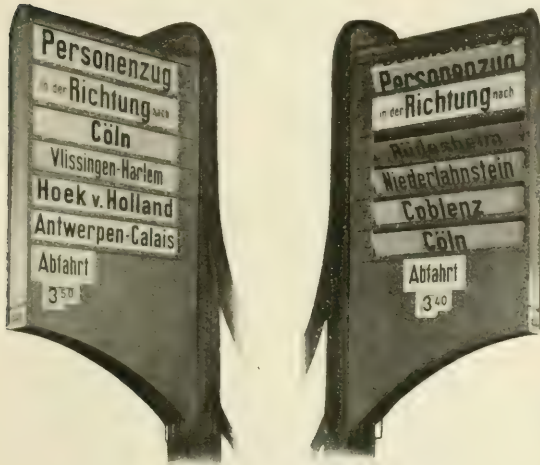 Personenzug
in der Richtung nach
Cöln
Vlissingen-Harlem
Hoek v. Holland
Antwerpen-Calais
Abfahrt
3 50
Personenzug
in der Richtung nach
Rüdesheim
Niederlahnstein
Coblenz
Cöln
Abfahrt
3 40